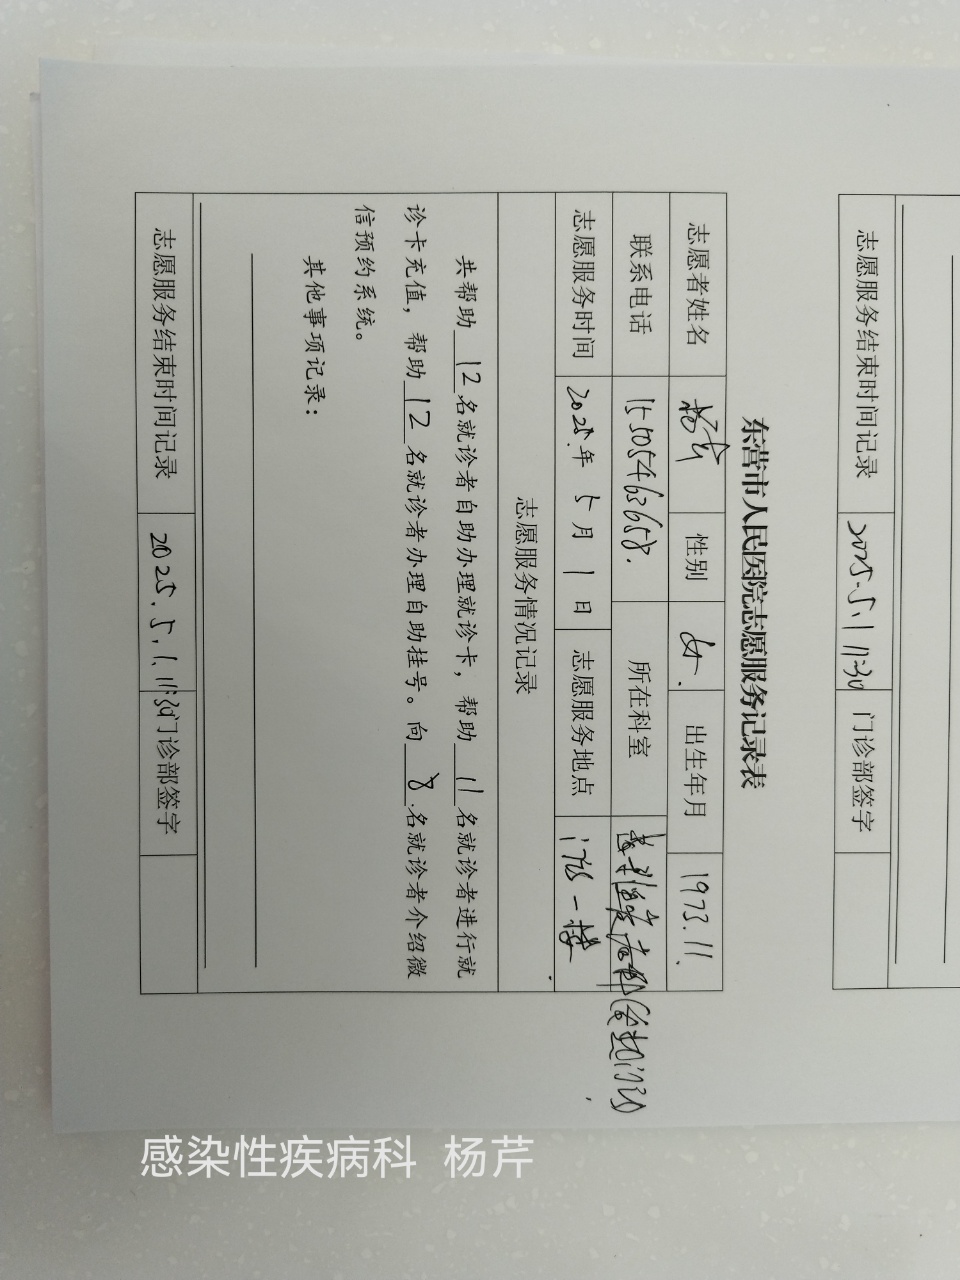 志愿服务结束时间记录 2025.5.1 11:30 门诊部签字
东营市人民医院志愿服务记录表
志愿者姓名 杨芹 性别 女. 出生年月 1973.11.
联系电话 15505463658. 所在科室
志愿服务时间 2025.年 5 月 1 日 志愿服务地点 门诊一楼
志愿服务情况记录
共帮助 12 名就诊者自助办理就诊卡，帮助 11 名就诊者进行就
诊卡充值，帮助 12 名就诊者办理自助挂号。向 8 名就诊者介绍微
信预约系统。
其他事项记录：
志愿服务结束时间记录 2025.5.1.11:30 门诊部签字
感染性疾病科 杨芹